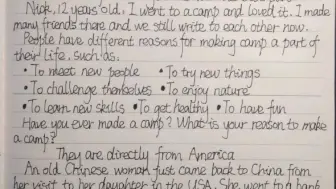 Nick, 12 years old. I went to a camp and loved it. I made
many friends there and we still write to each other now.
People have different reasons for making camp a part of
their life, such as:
• To meet new people • To try new things
• To challenge themselves • To enjoy nature
• To learn new skills • To get healthy • To have fun
Have you ever made a camp? What is your reason to make
a camp?
They are directly from America
An old Chinese woman just came back to China from
her visit to her daughter in the USA. She went to a bank